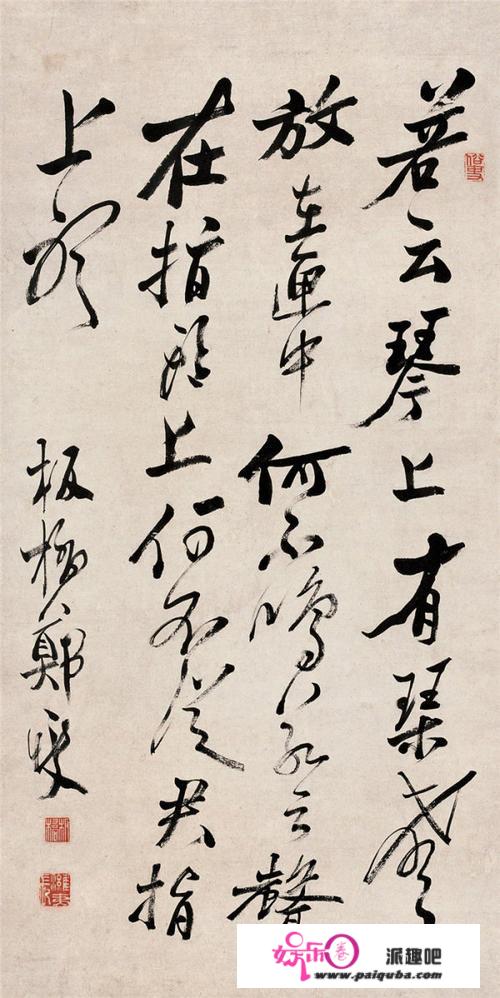 若云琴上有琴聲
放在匣中何不鳴若云聲
在指頭上何不從君指
上聽
板橋鄭燮
娱乐卷
派趣吧
www.paiquba.com